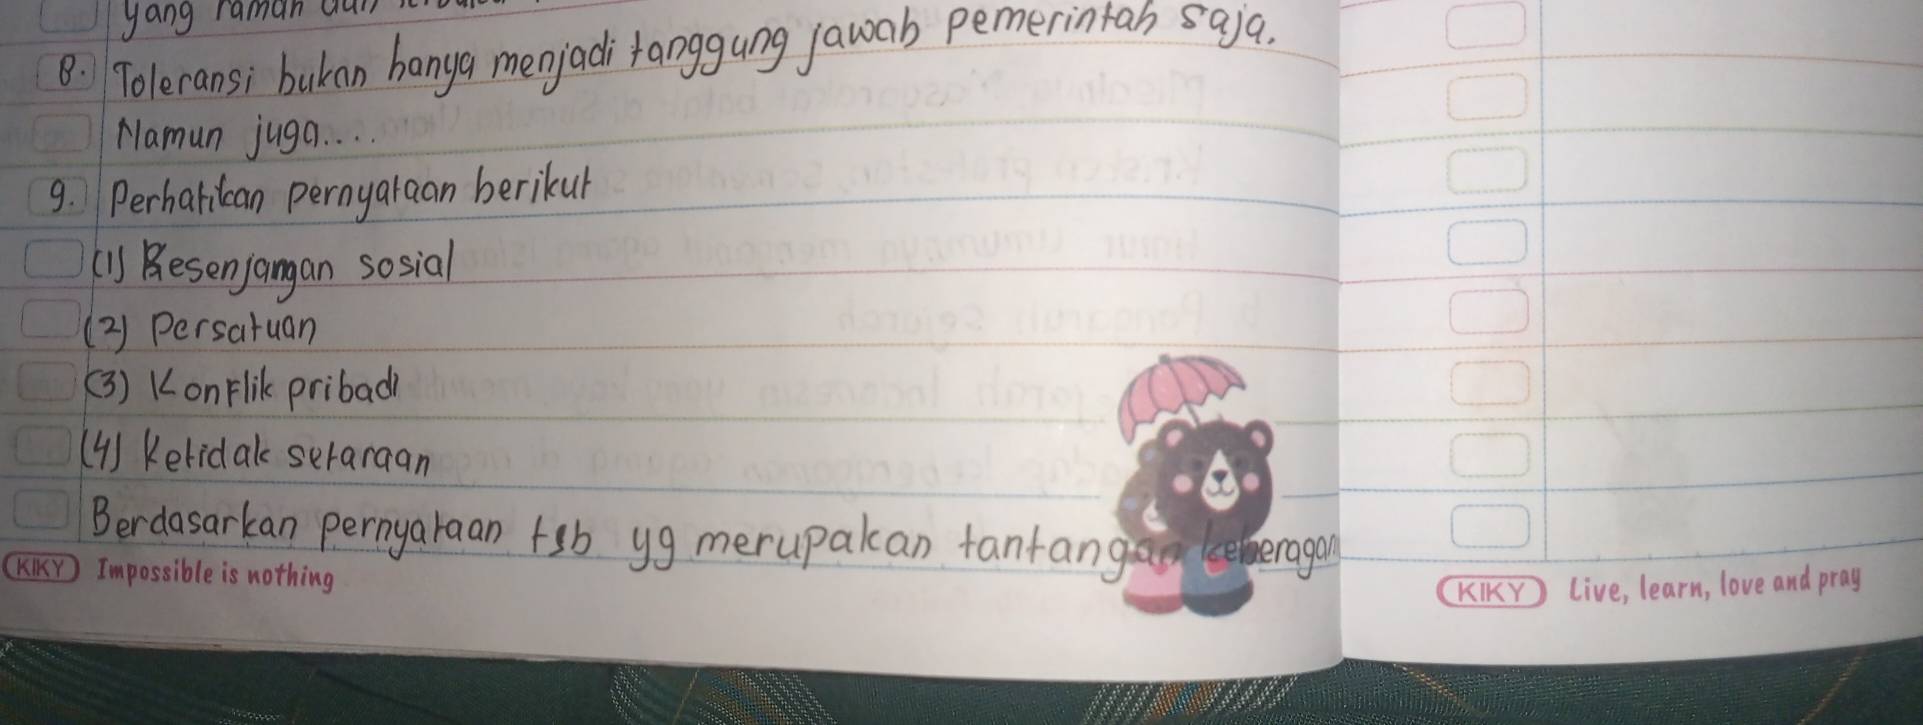 yang ramah dan
8. Toleransi bukan hanya menjadi tanggung jawab pemerintah saja.
Namun juga....
9. Perhatikan pernyataan berikut
(1) Kesenjangan sosial
(2) Persatuan
(3) Konflik pribadi
(4) Ketidak setaraan
Berdasarkan pernyataan tsb yg merupakan tantangan keberagan
KIKY Impossible is nothing
KIKY Live, learn, love and pray